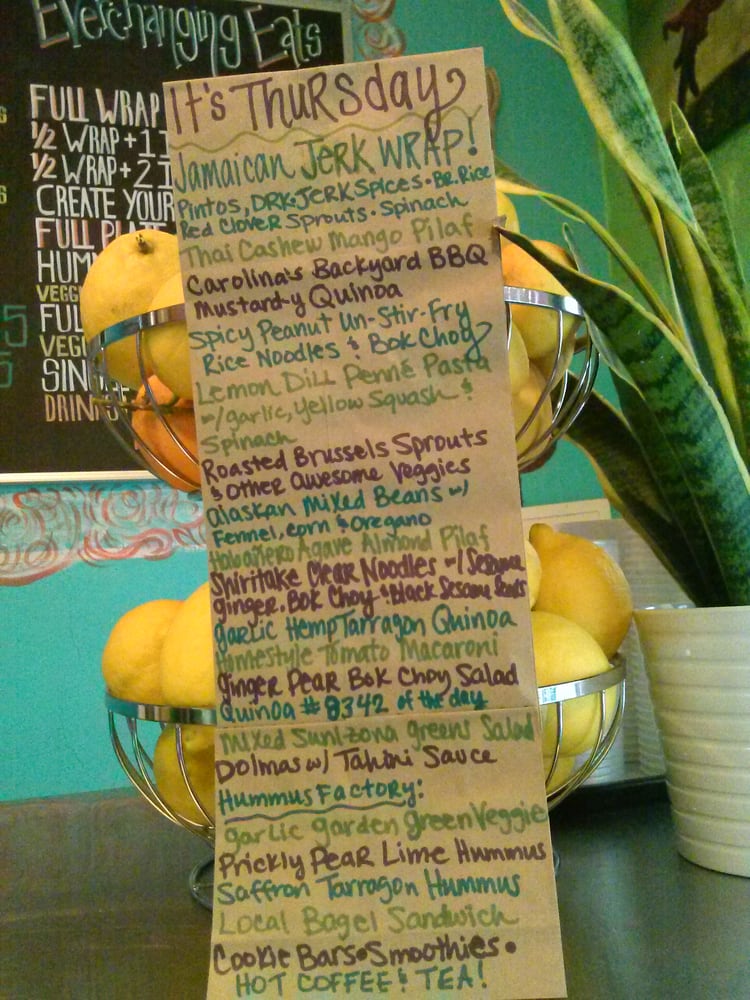 Everchanging Eats
FULL WRAP
1/2 WRAP + 1
1/2 WRAP + 2
CREATE YOUR
FULL
HUMM
VEGG
FUL
VEG
SIN
DRIN
5
5
It's Thursday
Jamaican Jerk WRAP!
Pintos, DRK. JERK Spices • Br. Rice
Red Clover Sprouts • Spinach
Thai Cashew Mango Pilaf
Carolina's Backyard BBQ
Mustard-y Quinoa
Spicy Peanut Un-Stir-Fry
Rice Noodles & Bok Choy
Lemon Dill Penné Pasta
w/garlic, yellow Squash &
Spinach
Roasted Brussels Sprouts
& Other Awesome Veggies
Alaskan Mixed Beans w/
Fennel, corn & Oregano
Habañero Agave Almond Pilaf
Shiritake Clear Noodles w/ Sesame
ginger, Bok Choy & Black Sesame Seeds
garlic Hemp Tarragon Quinoa
Homestyle Tomato Macaroni
Ginger Pear Bok Choy Salad
Quinoa # 8342 of the day
Mixed Sunizona greens Salad
Dolmas w/ Tahini Sauce
Hummus Factory:
garlic garden green Veggie
Prickly Pear Lime Hummus
Saffron Tarragon Hummus
Local Bagel Sandwich
Cookie Bars • Smoothies •
HOT COFFEE & TEA!